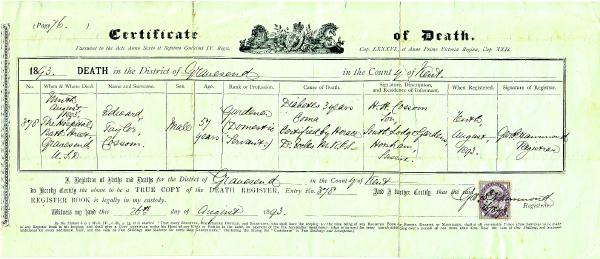 (Page 76.)
Certificate of Death.
Pursuant to the Acts Anno Sexto et Septimo Gulielmi IV. Regis, Cap. LXXXVI., et Anno Primo Victoriæ Reginæ, Cap. XXII.
1893. DEATH in the District of Gravesend in the County of Kent.
No. When & Where Died. Name and Surname. Sex. Age. Rank or Profession. Cause of Death. Signature, Description, and Residence of Informant. When Registered. Signature of Registrar.
378 Ninth August 1893. The Hospital, Bath Street Gravesend U.S.D.
Edward Taylor Cossom.
Male
57 years
Gardener (Domestic Servant)
Diabetes 3 years Coma Certified by
H. R. Cossom Son, South Lodge Gardens Horsham, Sussex.
Tenth August, 1893.
Geo. Hammond Registrar
Registrar of Births and Deaths for the District of Gravesend in the County of Kent
do Hereby Certify the above to be a TRUE COPY of the DEATH REGISTER, Entry No. 378 And I further Certify that the said
REGISTER BOOK is legally in my custody.
Witness my hand this 10th day of August 1893.
Geo. Hammond
Registrar